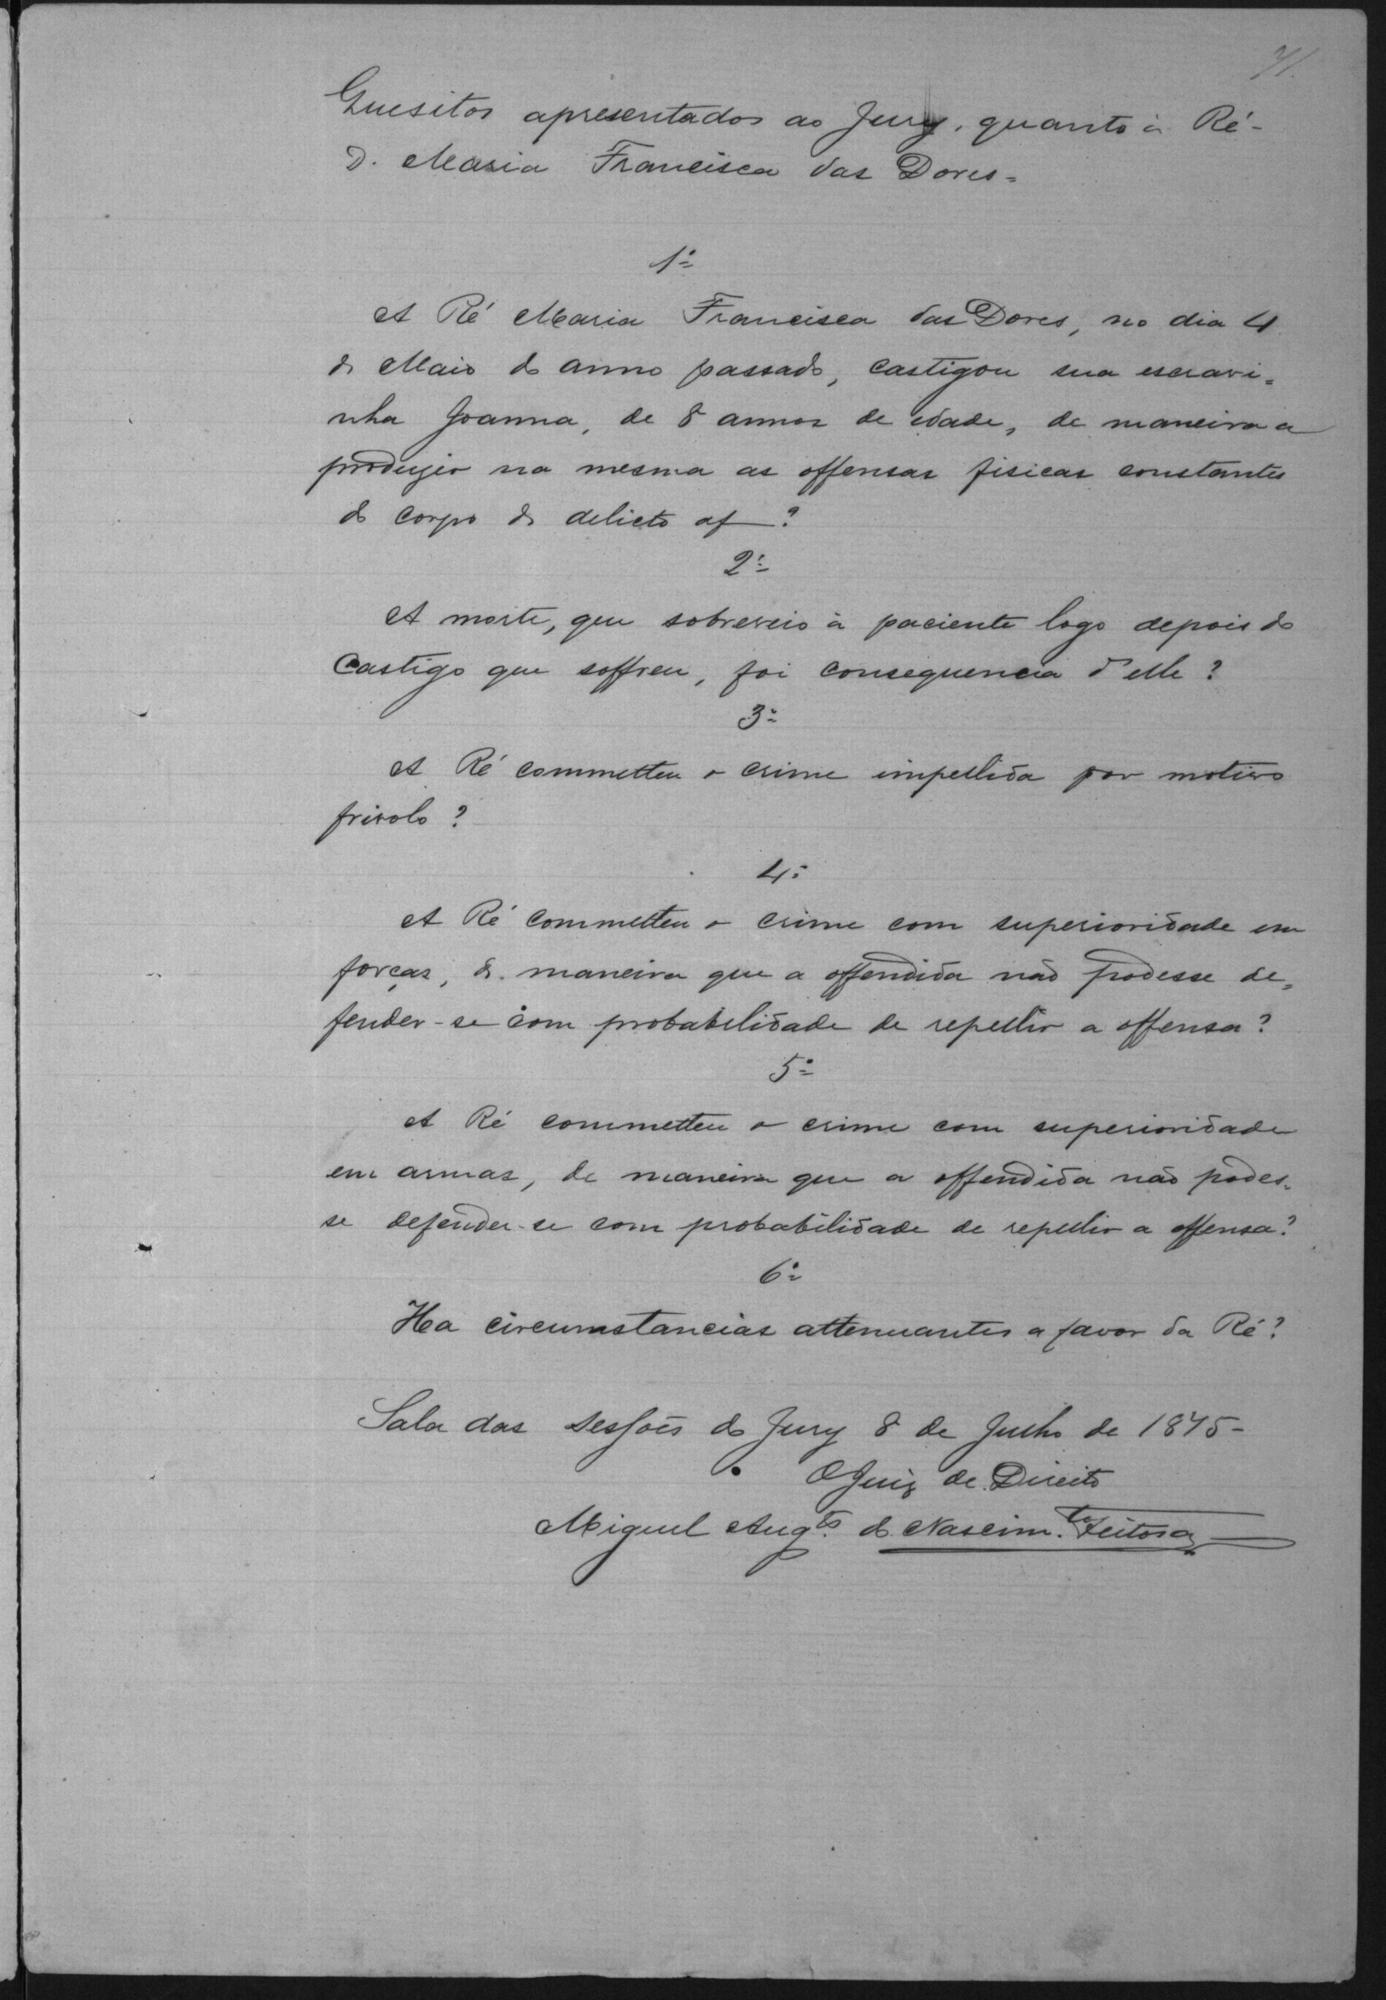 71.
Quesitos apresentados ao Jury, quanto à Ré-
D. Maria Francisca das Dores=
1º
A Ré Maria Francisca das Dores, no dia 4
de Maio do anno passado, castigou sua escravi=
nha Joanna, de 8 annos de edade, de maneira a
produzir na mesma as offensas fisicas constantes
do corpo de delicto af ?
2º
A morte, que sobreveio à paciente logo depois do
Castigo que soffreu, foi consequencia d'elle ?
3º
A Ré commetteu o crime impellida por motivo
frivolo ?
4º
A Ré commetteu o crime com superioridade em
forças, de maneira que a offendida não podesse de=
fender-se com probabilidade de repellir a offensa ?
5º
A Ré commetteu o crime com superioridade
em armas, de maneira que a offendida não podes=
se defender-se com probabilidade de repellir a offensa ?
6º
Ha circumstancias attenuantes a favor da Ré ?
Sala das sessões do Jury 8 de Julho de 1875-
O Juiz de Direito
Miguel Augto. do Nascimto. Feitosa